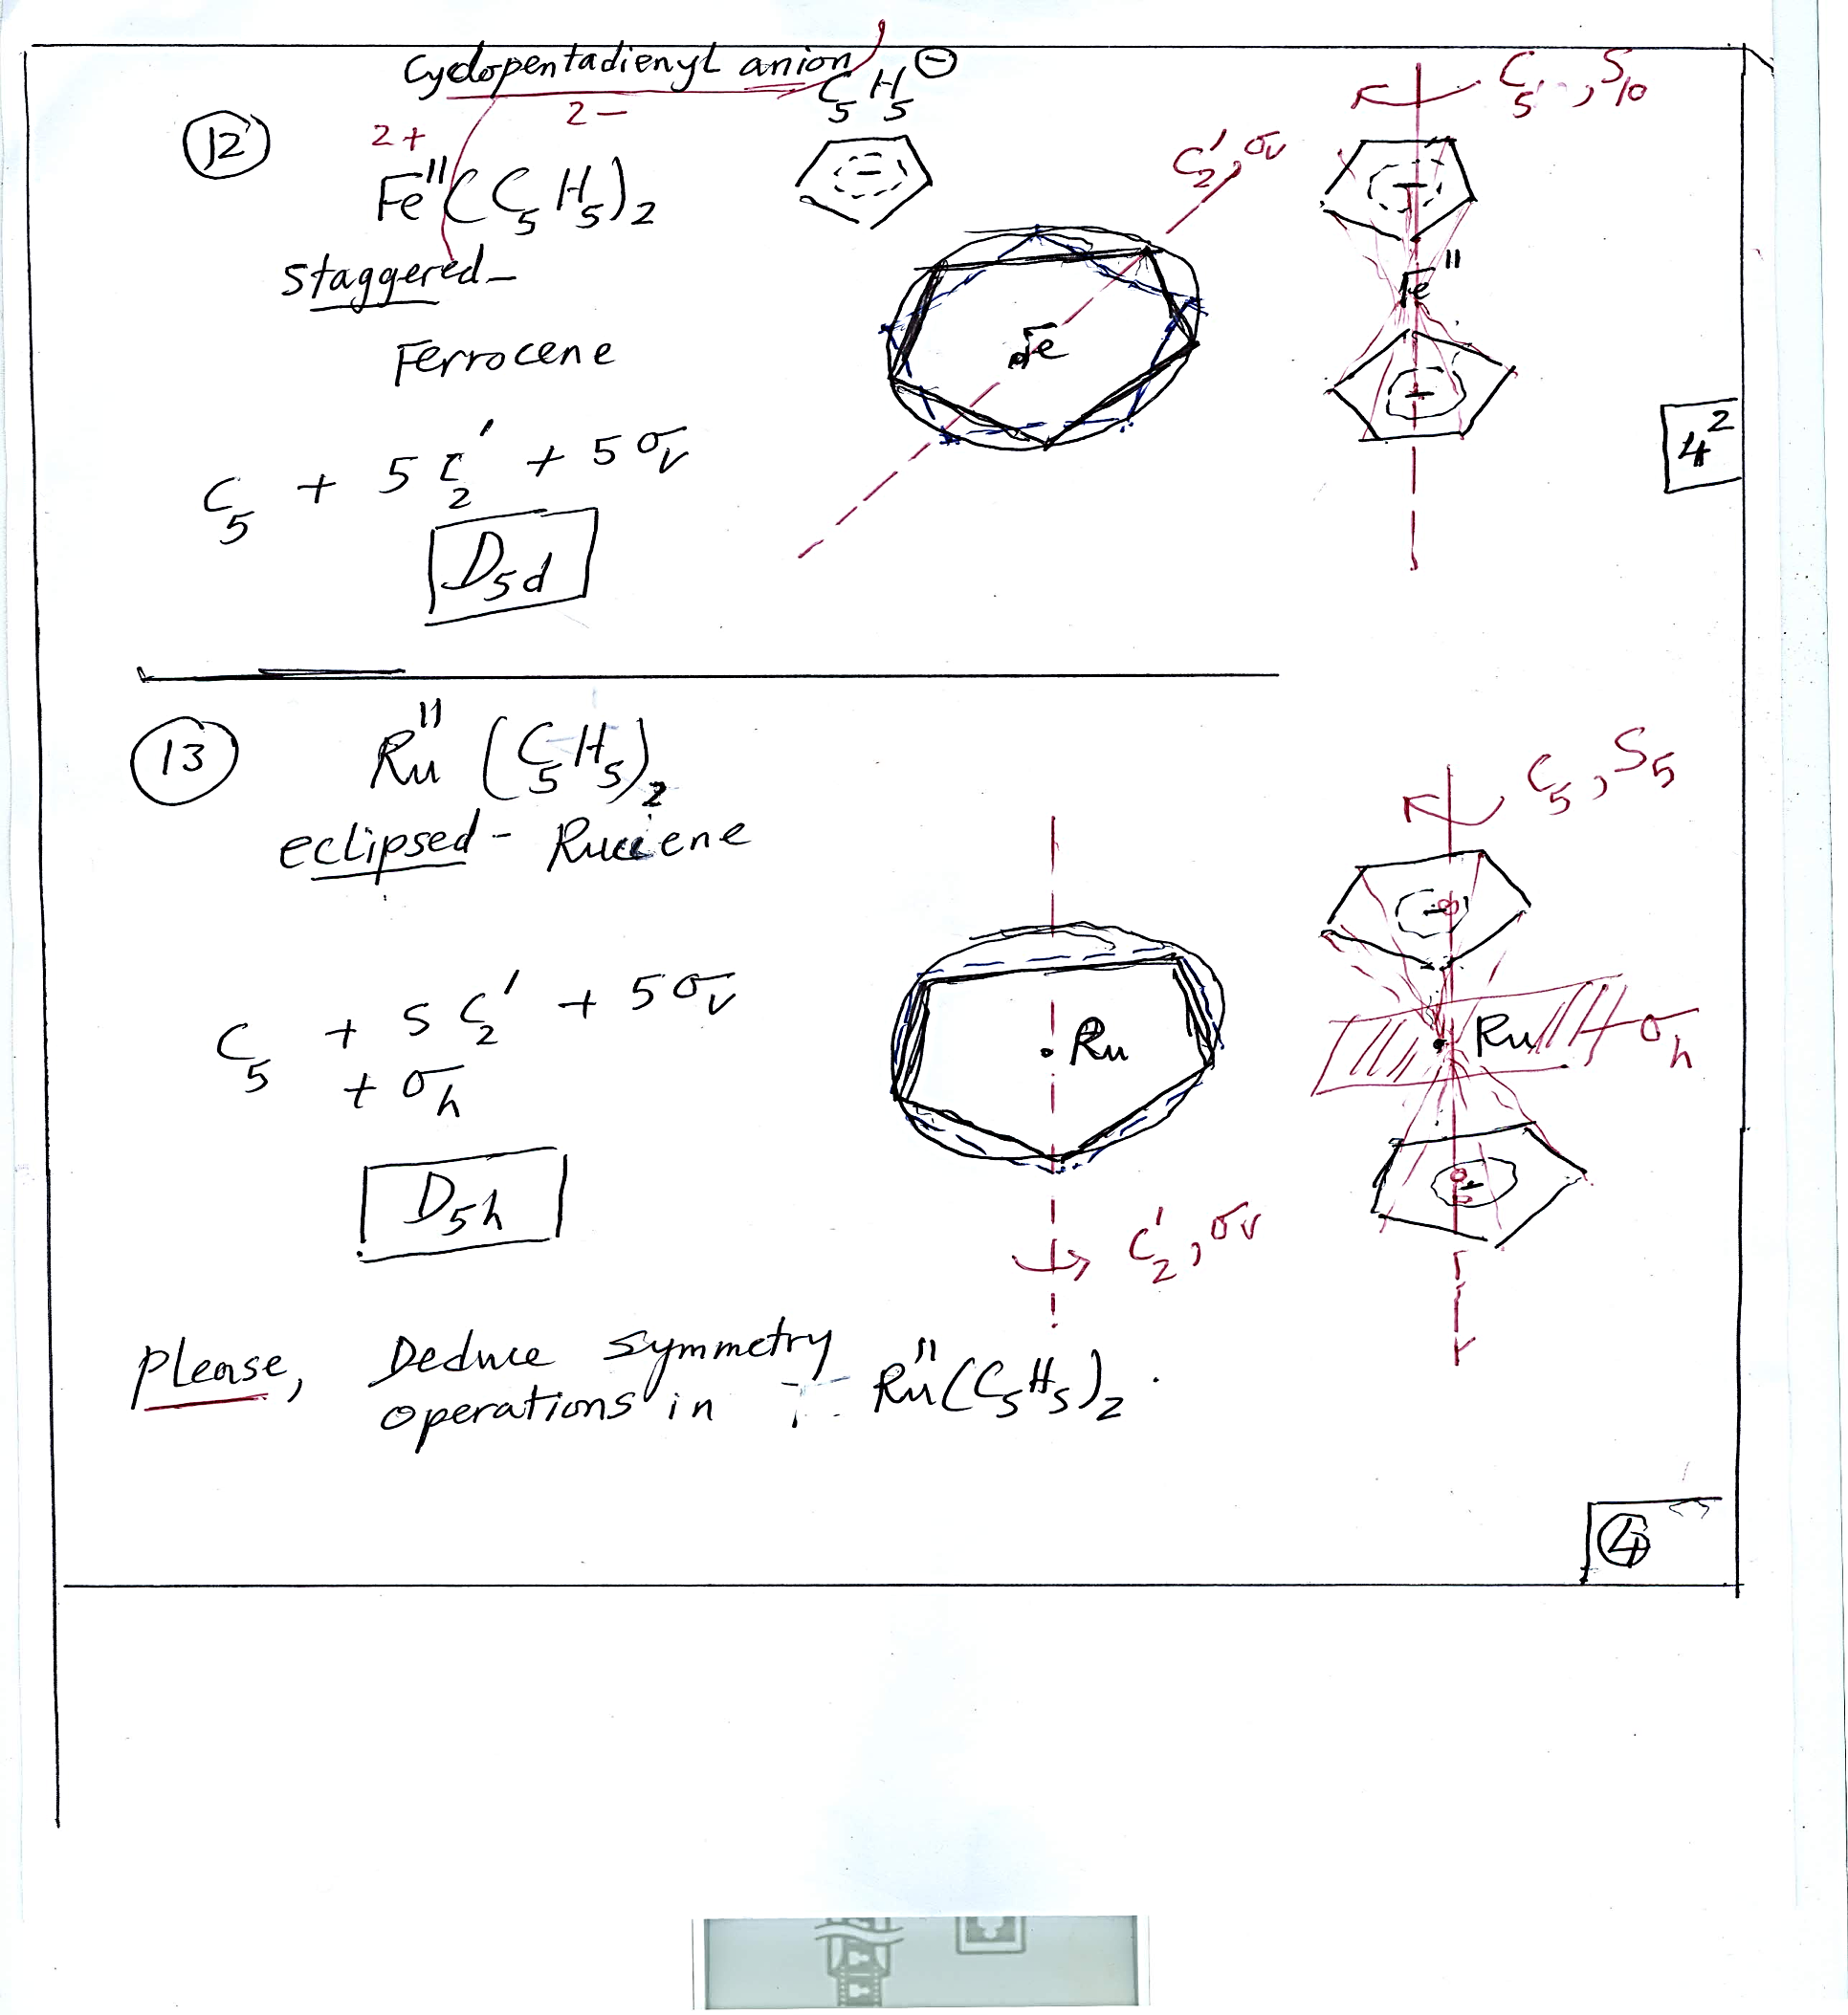 Cyclopentadienyl anion
C5H5⊖
2+ 2-
12
Fe"(C5H5)2
staggered-
Ferrocene
C5 + 5C2' + 5σv
D5d
Fe
C2', σv
C5, S10
Fe"
4²
13
Ru"(C5H5)2
eclipsed-
C5 + 5C2' + 5σv
+ σh
D5h
Ru
C2', σv
C5, S5
Ru
σh
Please, Deduce symmetry
operations in Ru"(C5H5)2.
4